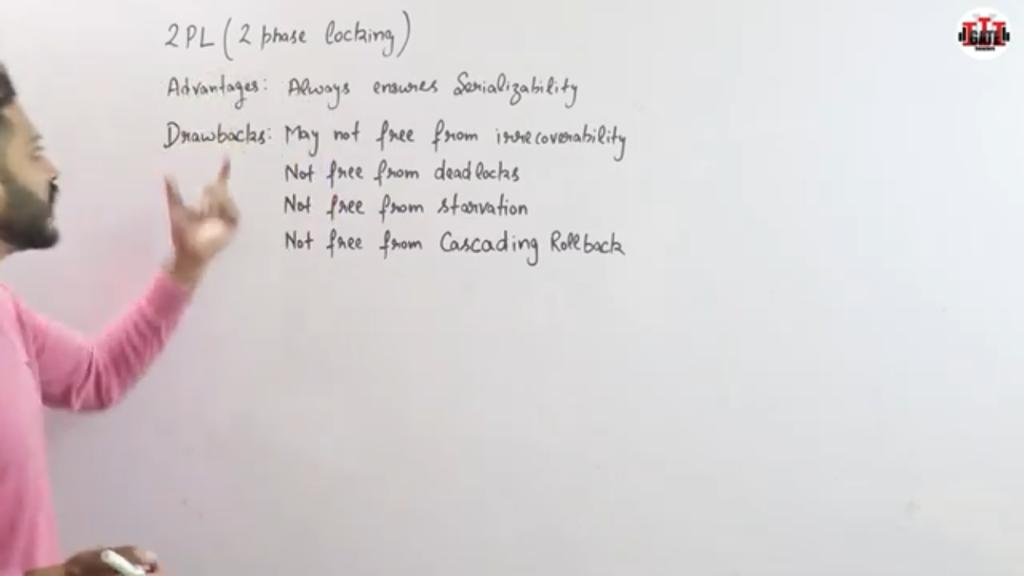 2PL (2 phase locking)
Advantages: Always ensures Serializability
Drawbacks: May not free from irrecoverability
Not free from deadlocks
Not free from starvation
Not free from Cascading Rollback
GATE